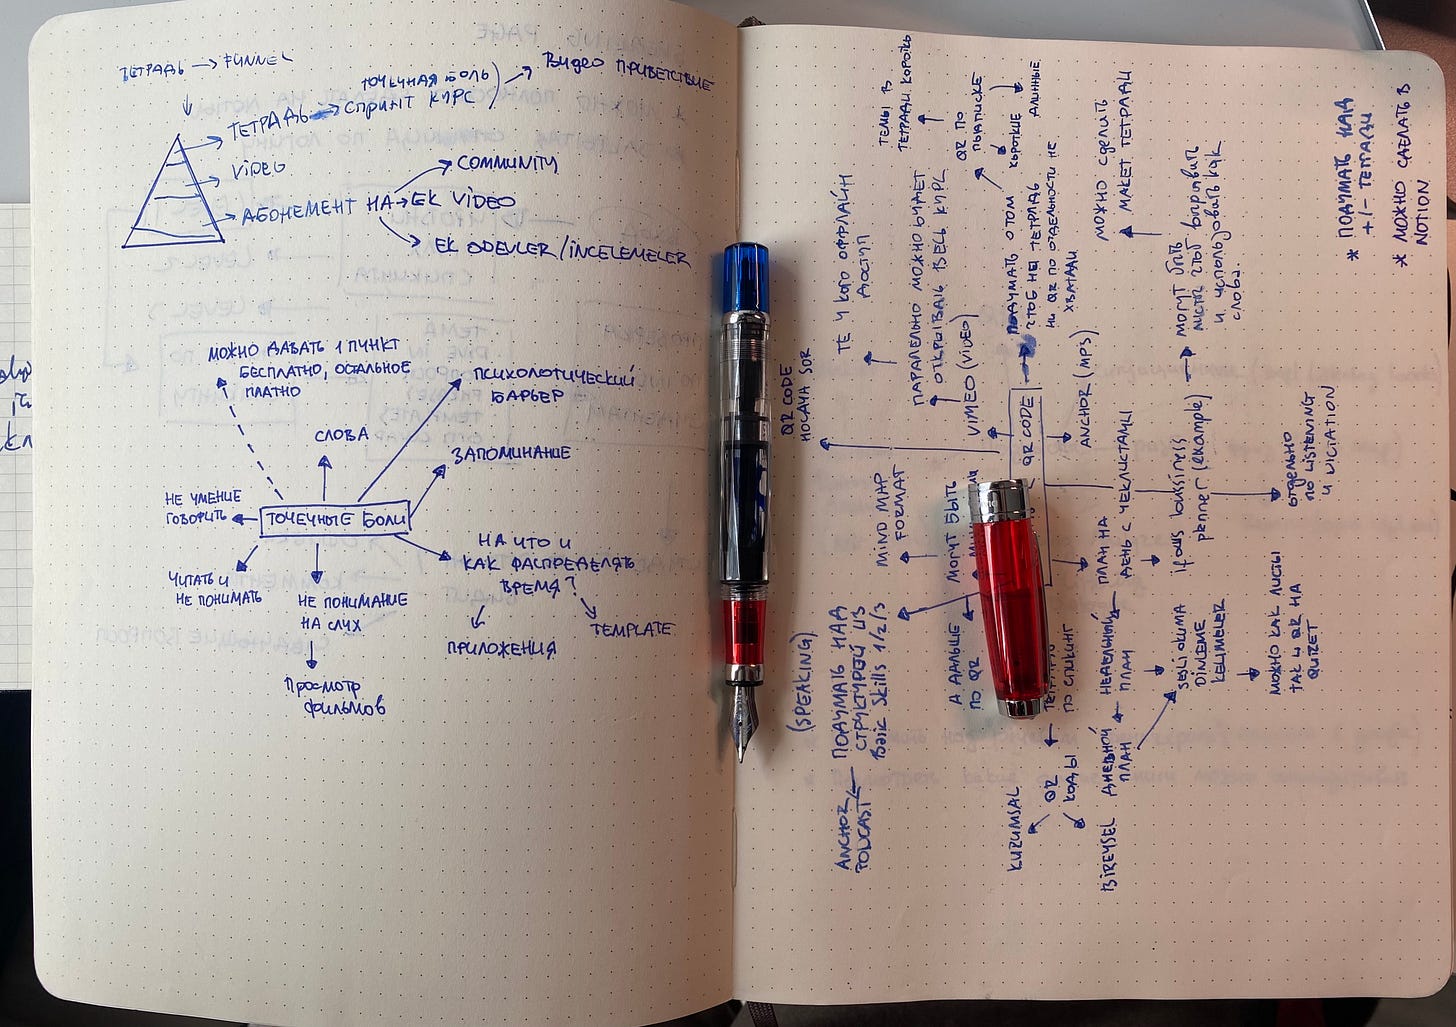 ТЕТРАДЬ → FUNNEL
ТЕТРАДЬ → СПРИНТ КУРС
ТОЧЕЧНАЯ БОЛЬ
ВИДЕО ПРИВЕТСТВИЕ
VİDEO
АБОНЕМЕНТ НА → EK VİDEO
COMMUNITY
EK ÖDEVLER / İNCELEMELER
МОЖНО ДАВАТЬ 1 ПУНКТ
БЕСПЛАТНО, ОСТАЛЬНОЕ
ПЛАТНО
ПСИХОЛОГИЧЕСКИЙ
БАРЬЕР
СЛОВА
ЗАПОМИНАНИЕ
НЕ УМЕНИЕ
ГОВОРИТЬ
ТОЧЕЧНЫЕ БОЛИ
НА ЧТО И
КАК РАСПРЕДЕЛЯТЬ
ВРЕМЯ?
ЧИТАТЬ И
НЕ ПОНИМАТЬ
НЕ ПОНИМАНИЕ
НА СЛУХ
ПРИЛОЖЕНИЯ
TEMPLATE
Просмотр
фильмов
QR CODE
HOCAYA SOR
ТЕ У КОГО ОФФЛАЙН
ДОСТУП
ТЕМЫ В
ТЕТРАДИ КОРОТКО
ПАРАЛЕЛЬНО МОЖНО БУДЕТ
ОТКРЫВАТЬ ВЕСЬ КУРС
VİMEO (VİDEO)
QR ПО
ПОДПИСКЕ
КОРОТКИЕ
ДЛИННЫЕ
QR CODE
ПОДУМАТЬ О ТОМ
ЧТОБ НЕ ТЕТРАДЬ
НИ QR ПО ОТДЕЛЬНОСТИ НЕ
ХВАТАЛИ
ANCHOR (MP3)
МОЖНО СДЕЛАТЬ
МАКЕТ ТЕТРАДИ
могут быть
и использовать как
слова.
* ПОДУМАТЬ НАД
+/- ТЕТРАДИ
* МОЖНО СДЕЛАТЬ В
NOTION
MİND MAP
FORMAT
МОГУТ БЫТЬ
ПЛАН НА
ДЕНЬ С ЧЕКЛИСТАМИ
planner (example)
ОТДЕЛЬНО
ПО LISTENING
И DICTATION
(SPEAKING)
ANCHOR
PODCAST
ПОДУМАТЬ НАД
СТРУКТУРОЙ ИЗ
Basic Skills 1/2/3
А ДАЛЬШЕ
ПО QR
ПО СПИКИНГ
НЕДЕЛЬНЫЙ
ПЛАН
SESLİ OKUMA
DİNLEME
KELİMELER
МОЖНО КАК ЛИСТЫ
ТАК И QR НА
QUİZLET
KURUMSAL
QR
КОДЫ
BİREYSEL
ДНЕВНОЙ
ПЛАН